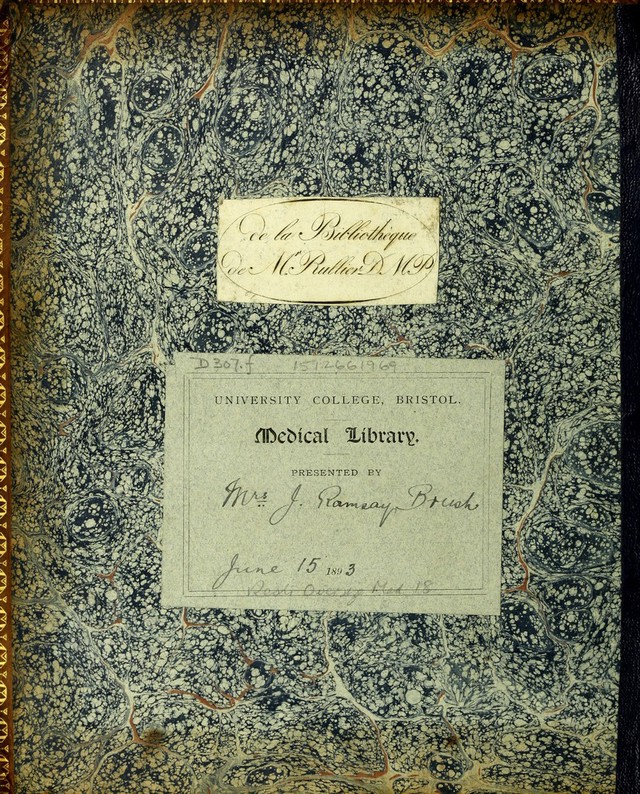 de la Bibliothèque
de Mr. Rullier D. M. P.
D307.f 1512661969
UNIVERSITY COLLEGE, BRISTOL.
Medical Library.
PRESENTED BY
Mrs J. Ramsay Brush
June 15 1893
Med 18